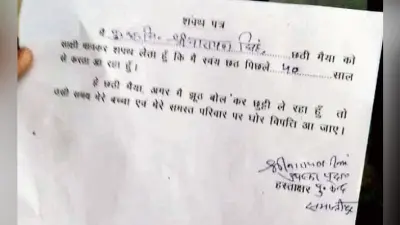 शपथ पत्र
मै पु० श्रीनारायण सिंह, छठी मैया को
साक्षी मानकर शपथ लेता हूँ कि मै स्वयं छठ पिछले साल
से करता आ रहा हूँ।
हे छठी मैया, अगर मै झूठ बोल कर छुट्टी ले रहा हूँ तो
उसी समय मेरे बच्चा एवं मेरे समस्त परिवार पर घोर विपत्ति आ जाए।
श्रीनारायण सिंह
हस्ताक्षर पु० केन्द्र